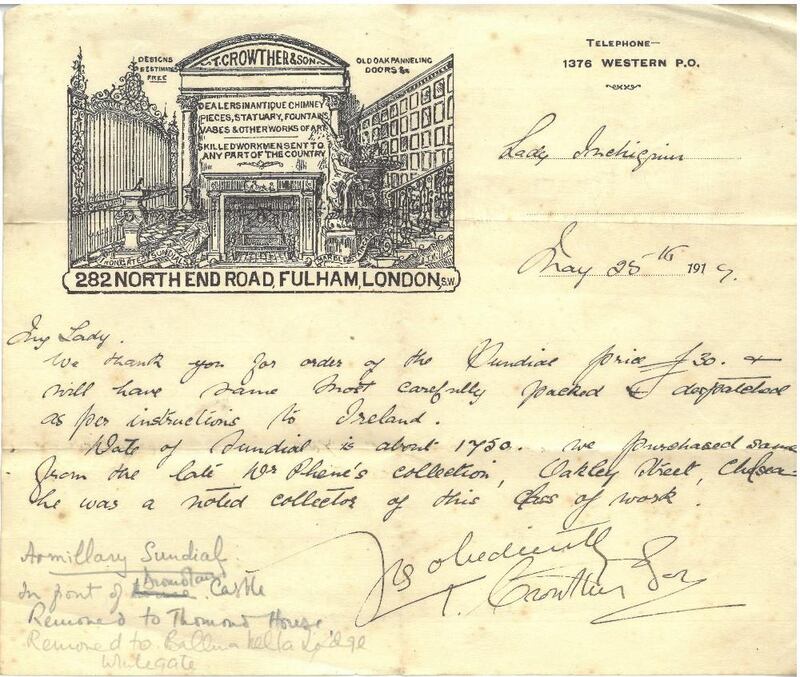 DESIGNS
& ESTIMATES
FREE
T. CROWTHER & SON.
OLD OAK PANNELING
DOORS &c
DEALERS IN ANTIQUE CHIMNEY
PIECES, STATUARY, FOUNTAINS
VASES & OTHER WORKS OF ART
SKILLED WORKMEN SENT TO
ANY PART OF THE COUNTRY
IRON GATES SUNDIALS
282 NORTH END ROAD, FULHAM, LONDON, S.W.
TELEPHONE—
1376 WESTERN P.O.
Lady Inchiquin
May 25th 1919.
My Lady.
We thank you for order of the Sundial price £30. &
will have same most carefully packed & despatched
as per instructions to Ireland.
Date of Sundial is about 1750. We purchased same
from the late Dr Phené's collection, Oakley Street, Chelsea
he was a noted collector of this class of work.
Yrs obediently
T. Crowther & Son
Armillary Sundial
Dromoland
In front of Castle
Removed to Thomond House
Removed to Ballinakella Lodge
Whitegate